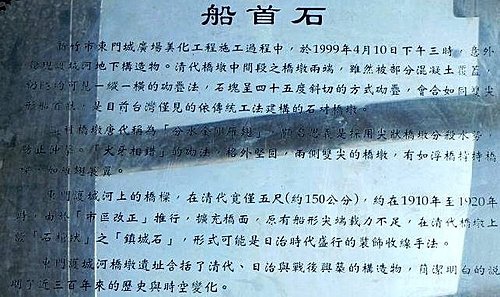 船首石
新竹市東門城廣場美化工程施工過程中,於1999年4月10日下午三時,意外
發現護城河地下構造物。清代橋墩中間段之橋墩兩端,雖然被部分混凝土覆蓋,
仍可見一縱一橫的砌疊法,石塊呈四十五度斜切的方式砌疊,會合如同雙尖
形船首狀,是目前台灣僅見的依傳統工法建構的石砌橋墩。
橋墩唐代稱為「分水金剛雁翅」,顧名思義是採用尖狀橋墩分殺水勢,
防止沖擊。「犬牙相錯」的砌法,格外堅固,兩側雙尖的橋墩,有如浮橋
東門護城河上的橋樑,在清代寬僅五尺(約150公分),約在1910年至1920年
時,由於「市區改正」推行,擴充橋面,原有船形尖端載力不足,在清代橋墩上
之「鎮城石」,形式可能是日治時代盛行的裝飾收線手法。
東門護城河橋墩遺址合括了清代、日治與戰後興築的構造物,簡潔明白的說
明了近三百年來的歷史與時空變化。